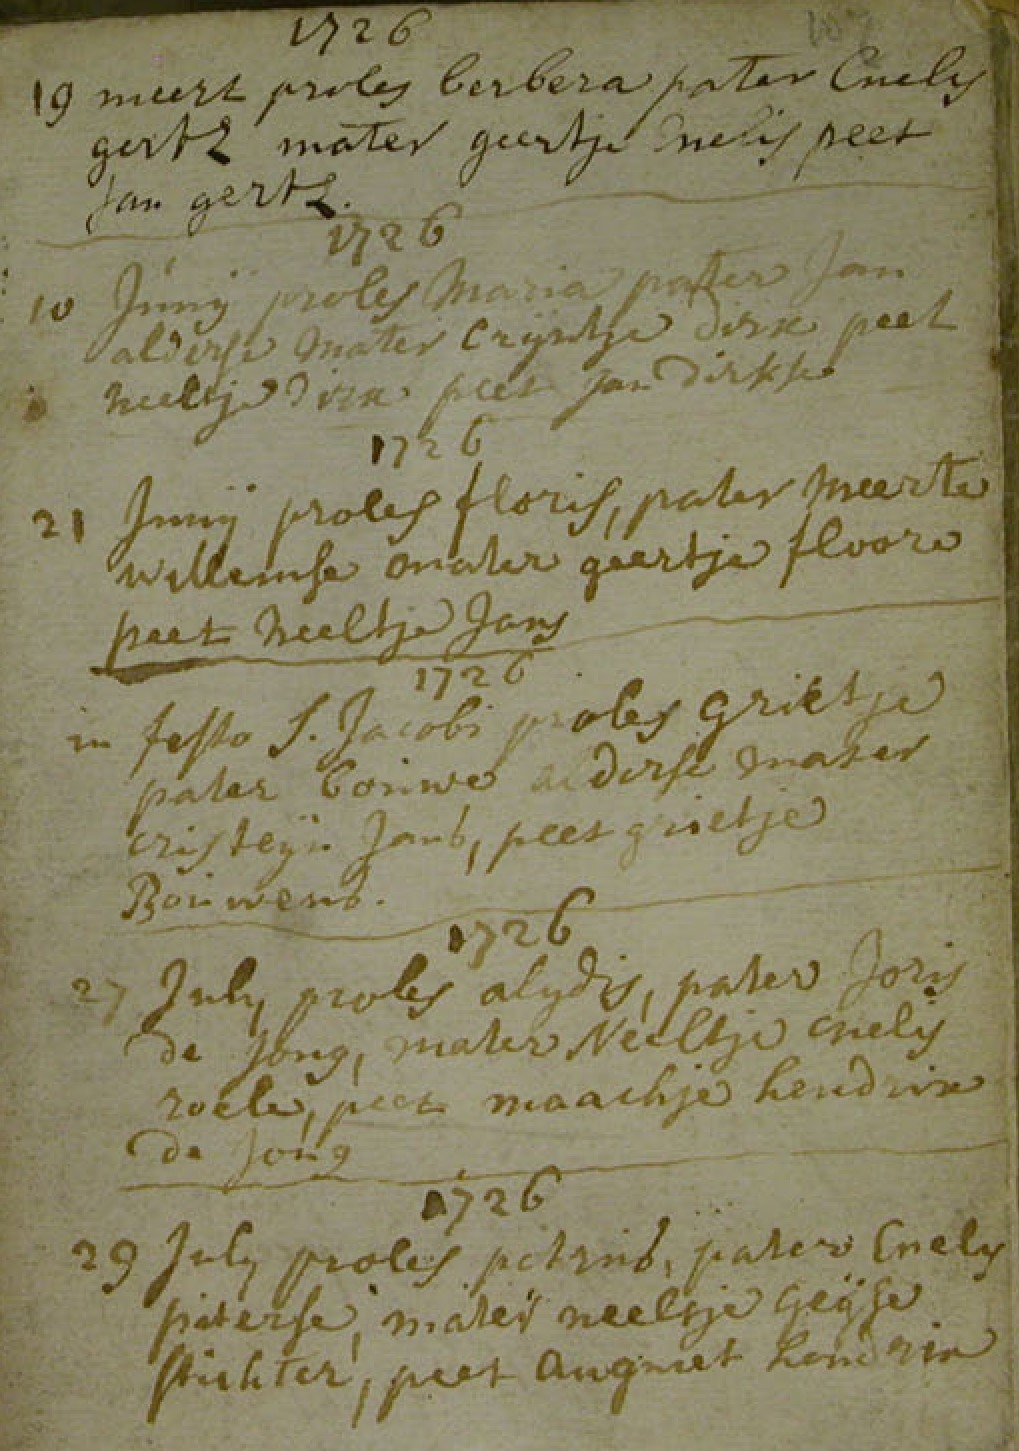 1726
19 meert proles berbera pater Cnelis
gertz mater geertje Cnelis peet
Jan gertz.
1726
10 Junij proles Maria pater Jan
alderse mater Crijntje dirx peet
neeltje dirx peet Jan dirkse
1726
21 Junij proles floris, pater meerte
willemse mater geertje floore
peet neeltje Jans
1726
in festo S. Jacobi proles grietje
pater bouwe alderse mater
cristeijn Jans, peet grietje
Bouwens.
1726
27 July proles alydis, pater Joris
de Jong, mater Neeltje Cnelis
roele, peet maachje hendrix
de Jong
1726
29 July proles petrus, pater Cnelis
pieterse, mater neeltje geijse
stichter, peet hendrix